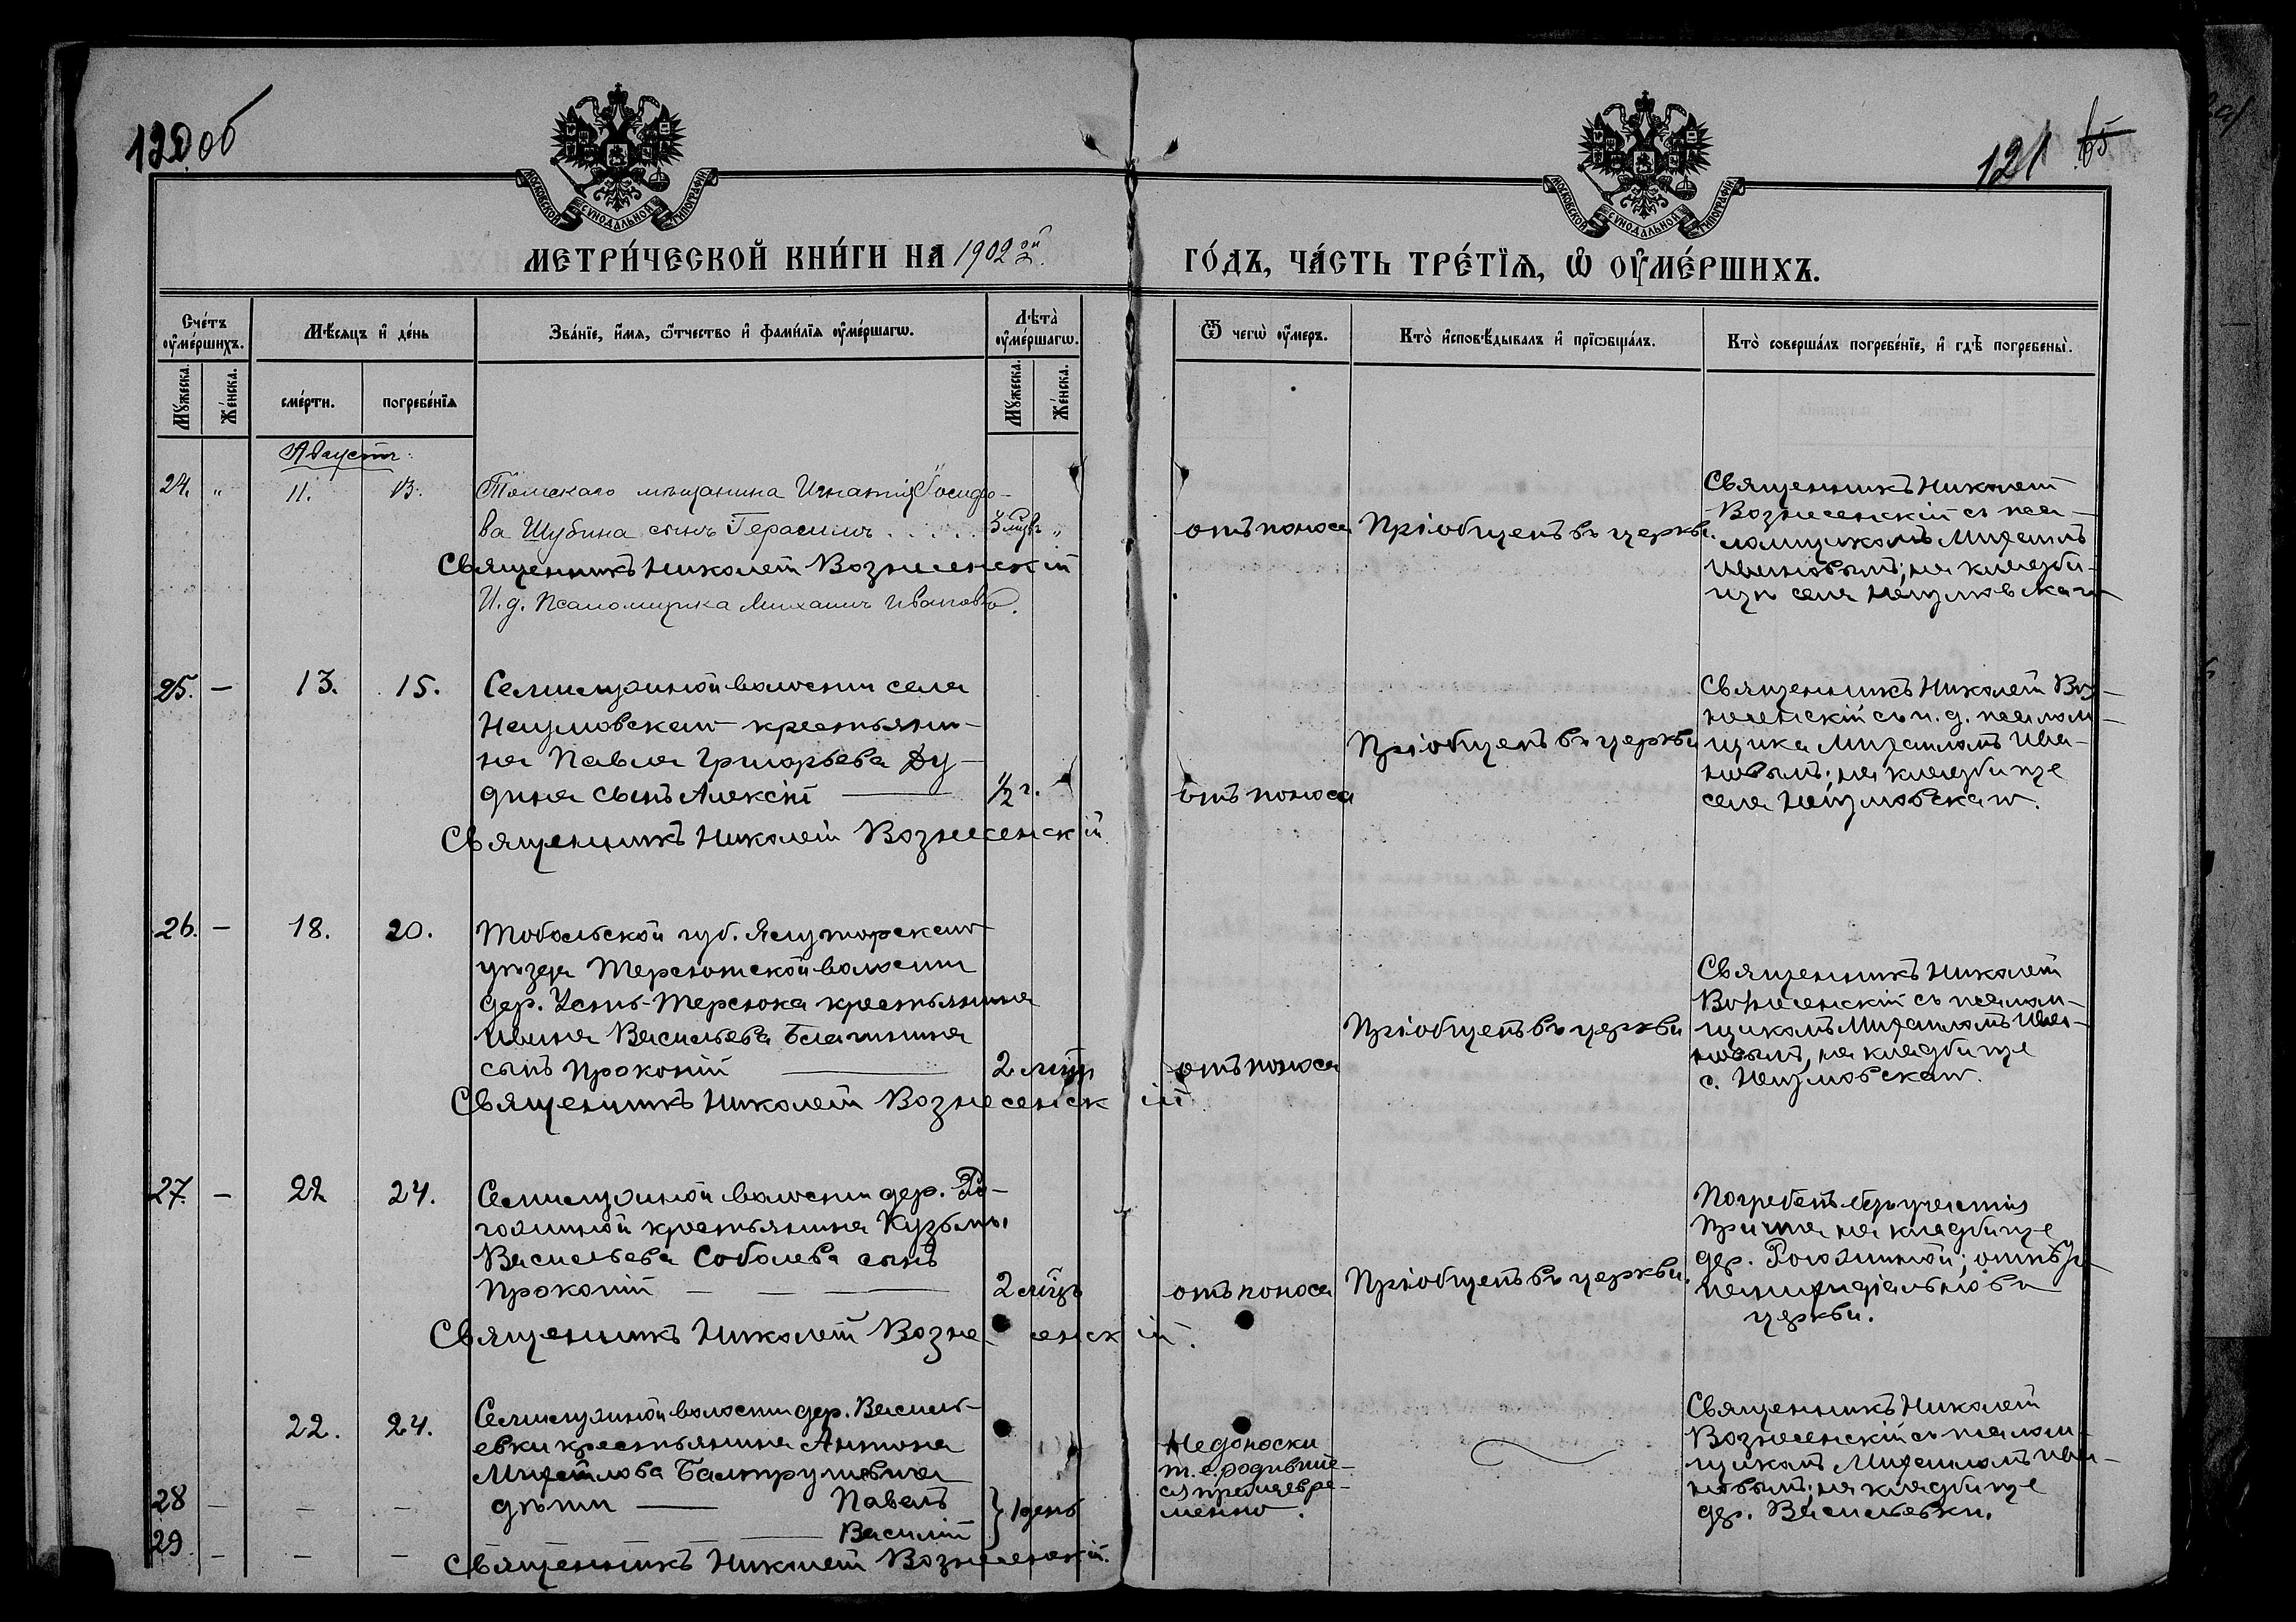 120об
121 65
МОСКОВСКОЙ СѴНОДАЛЬНОЙ ТИПОГРАФІИ
МОСКОВСКОЙ СѴНОДАЛЬНОЙ ТИПОГРАФІИ
МЕТРИ́ЧЕСКОЙ КНИ́ГИ НА 1902ой ГО́ДЪ, ЧА́СТЬ ТРЕ́ТЇѦ, Ѡ҆ ОУ҆МЕ́РШИХЪ.
Сче́тъ оу҆ме́ршихъ.
Мѣ́сяцъ и҆ де́нь
Зва́нїе, и҆́мя, ѻ҆́тчество и҆ фами́лїя оу҆ме́ршагѡ.
Лѣ́та оу҆ме́ршагѡ.
Ѿ чегѡ̀ оу҆́меръ.
Кто̀ и҆сповѣ́дывалъ и҆ прїѡбща́лъ.
Кто̀ соверша́лъ погребе́нїе, и҆ гдѣ̀ погребены̀.
Му́жеска. Же́нска. сме́рти. погребе́нїя Му́жеска. Же́нска.
Августъ.
24. " 11. 13. Томскаго мѣщанина Игнатія Іосифо-
ва Шубина сынъ Герасимъ . . . . . 3 мцъ "
Священникъ Николай Вознесенскій
И. д. Псаломщика Михаилъ Ивановъ.
отъ поноса Пріобщенъ въ церкви.
Священникъ Николай
Вознесенскій съ пса-
ломщикомъ Михаиломъ
Ивановымъ; на кладби-
щѣ села Наумовскаго
25. – 13. 15. Семилужной волости села
Наумовскаго крестьяни-
на Павла Григорьева Ду-
дина сынъ Алексій — 1/2 г.
Священникъ Николай Вознесенскій
отъ поноса
Пріобщенъ въ церкви
Священникъ Николай Воз-
несенскій съ и. д. псалом-
щика Михаиломъ Ива-
новымъ; на кладбище
села Наумовскаго.
26. – 18. 20. Тобольской губ. Ялуторскаго
уѣзда Терсютской волости
дер. Усть-Терсюка крестьянина
Ивана Васильева
сынъ Прокопій — 2 лѣтъ
Священникъ Николай Вознесенскій
отъ поноса
Пріобщенъ въ церкви
Священникъ Николай
Вознесенскій съ псалом-
щикомъ Михаиломъ Ива-
новымъ, на кладбище
с. Наумовскаго.
27. – 22 24. Семилужной волости дер. Ро-
гожиной крестьянина Кузьмы
Васильева Соболева сынъ
Прокопій — — — 2 мцъ
Священникъ Николай Вознесенскій.
отъ поноса Пріобщенъ въ церкви.
Погребенъ безъ участія
Причта на кладбище
дер. Рогожиной; отпѣтъ
въ
церкви.
22. 24. Семилужной волости дер. Василь-
евки крестьянина Антона
Михайлова
28 – – – дѣти — Павелъ } 1 день
29 – – – — Василій
Священникъ Николай Вознесенскій.
Недоноски
т.е. родившіе-
ся преждевре-
менно.
Священникъ Николай
Вознесенскій съ псалом-
щикомъ Михаиломъ Ива-
новымъ; на кладбище
дер. Васильевки.